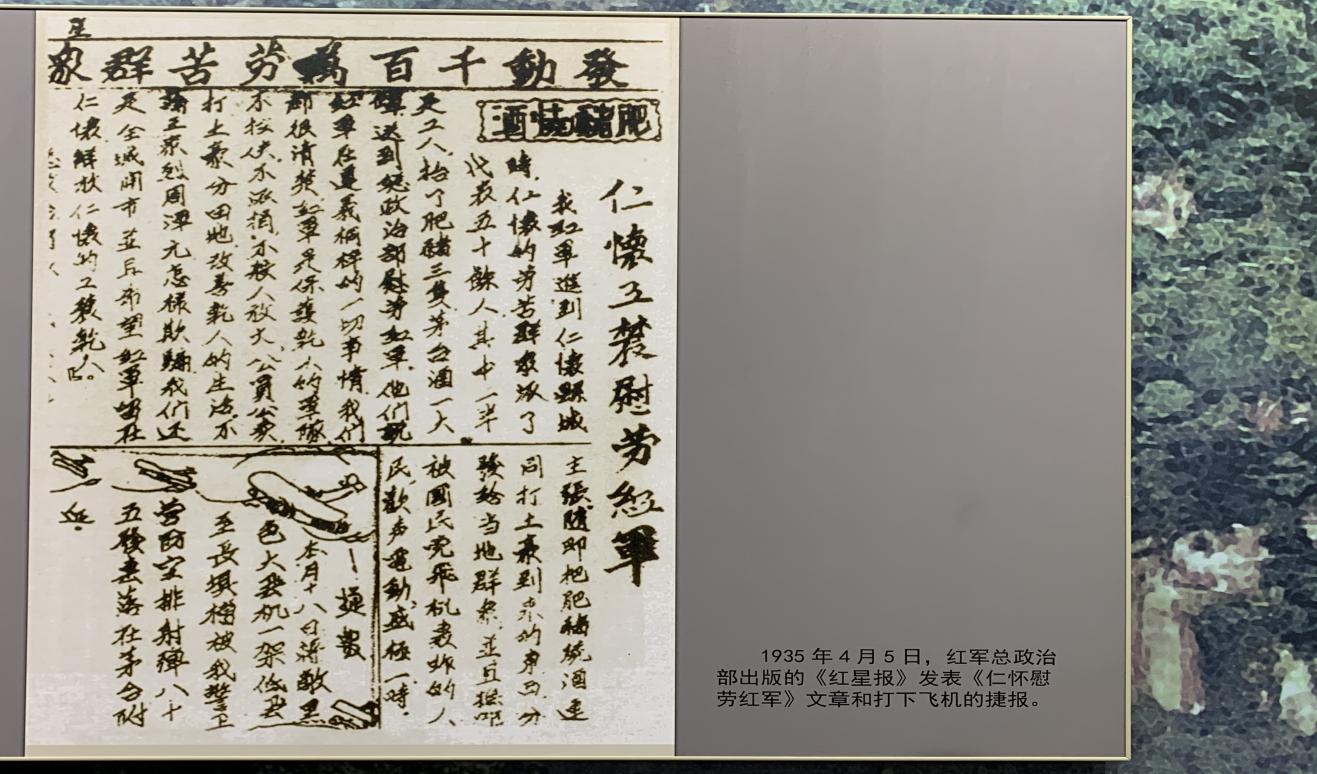 發動千百萬劳苦群衆
肥豬燒酒
仁懷工農慰劳紅軍
我紅軍進到仁懷縣城
時,仁懷的劳苦群衆派了
代表五十餘人其中一半
是工人抬了肥豬三隻茅台酒一大
送到總政治部慰劳紅軍.他們說
紅軍在遵義桐梓的一切事情我們
都很清楚紅軍是保護乾人的軍隊
不拉伕不派捐.不
打土豪分田地改善乾人的生活不
王家烈周渾元怎樣欺騙我們还
是全城開市並且希望紅軍留在
仁懷解放仁懷的工農乾人。
主張隨即把肥豬燒酒連
同打土豪到來的東西分
發給当地群衆並且
被國民党飛机轰炸的人
民,歡声雷動盛極一時.
—捷報
本月十八日蔣敵黑
色大飛机一架低飛
至長壩槽被我警卫
营防空排射彈八十
五發落在茅台附
近.
1935 年 4 月 5 日，红军总政治
部出版的《红星报》发表《仁怀慰
劳红军》文章和打下飞机的捷报。